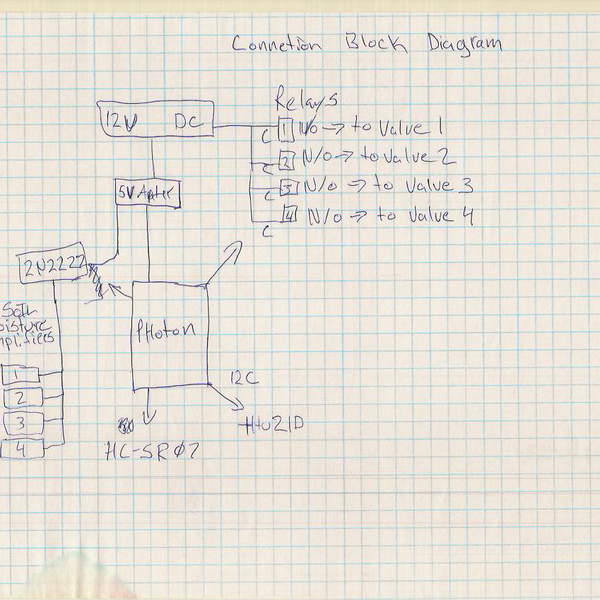 Connetion Block Diagram
Relays
12V DC
C 1 N/o → to Valve 1
C 2 N/o → to valve 2
C 3 N/o → to valve 3
C 4 N/o → to valve 4
5V
2N2222
Photon
Soil
oisture
mplifiers
1
2
3
4
I2C
Htu21D
HC-SR0